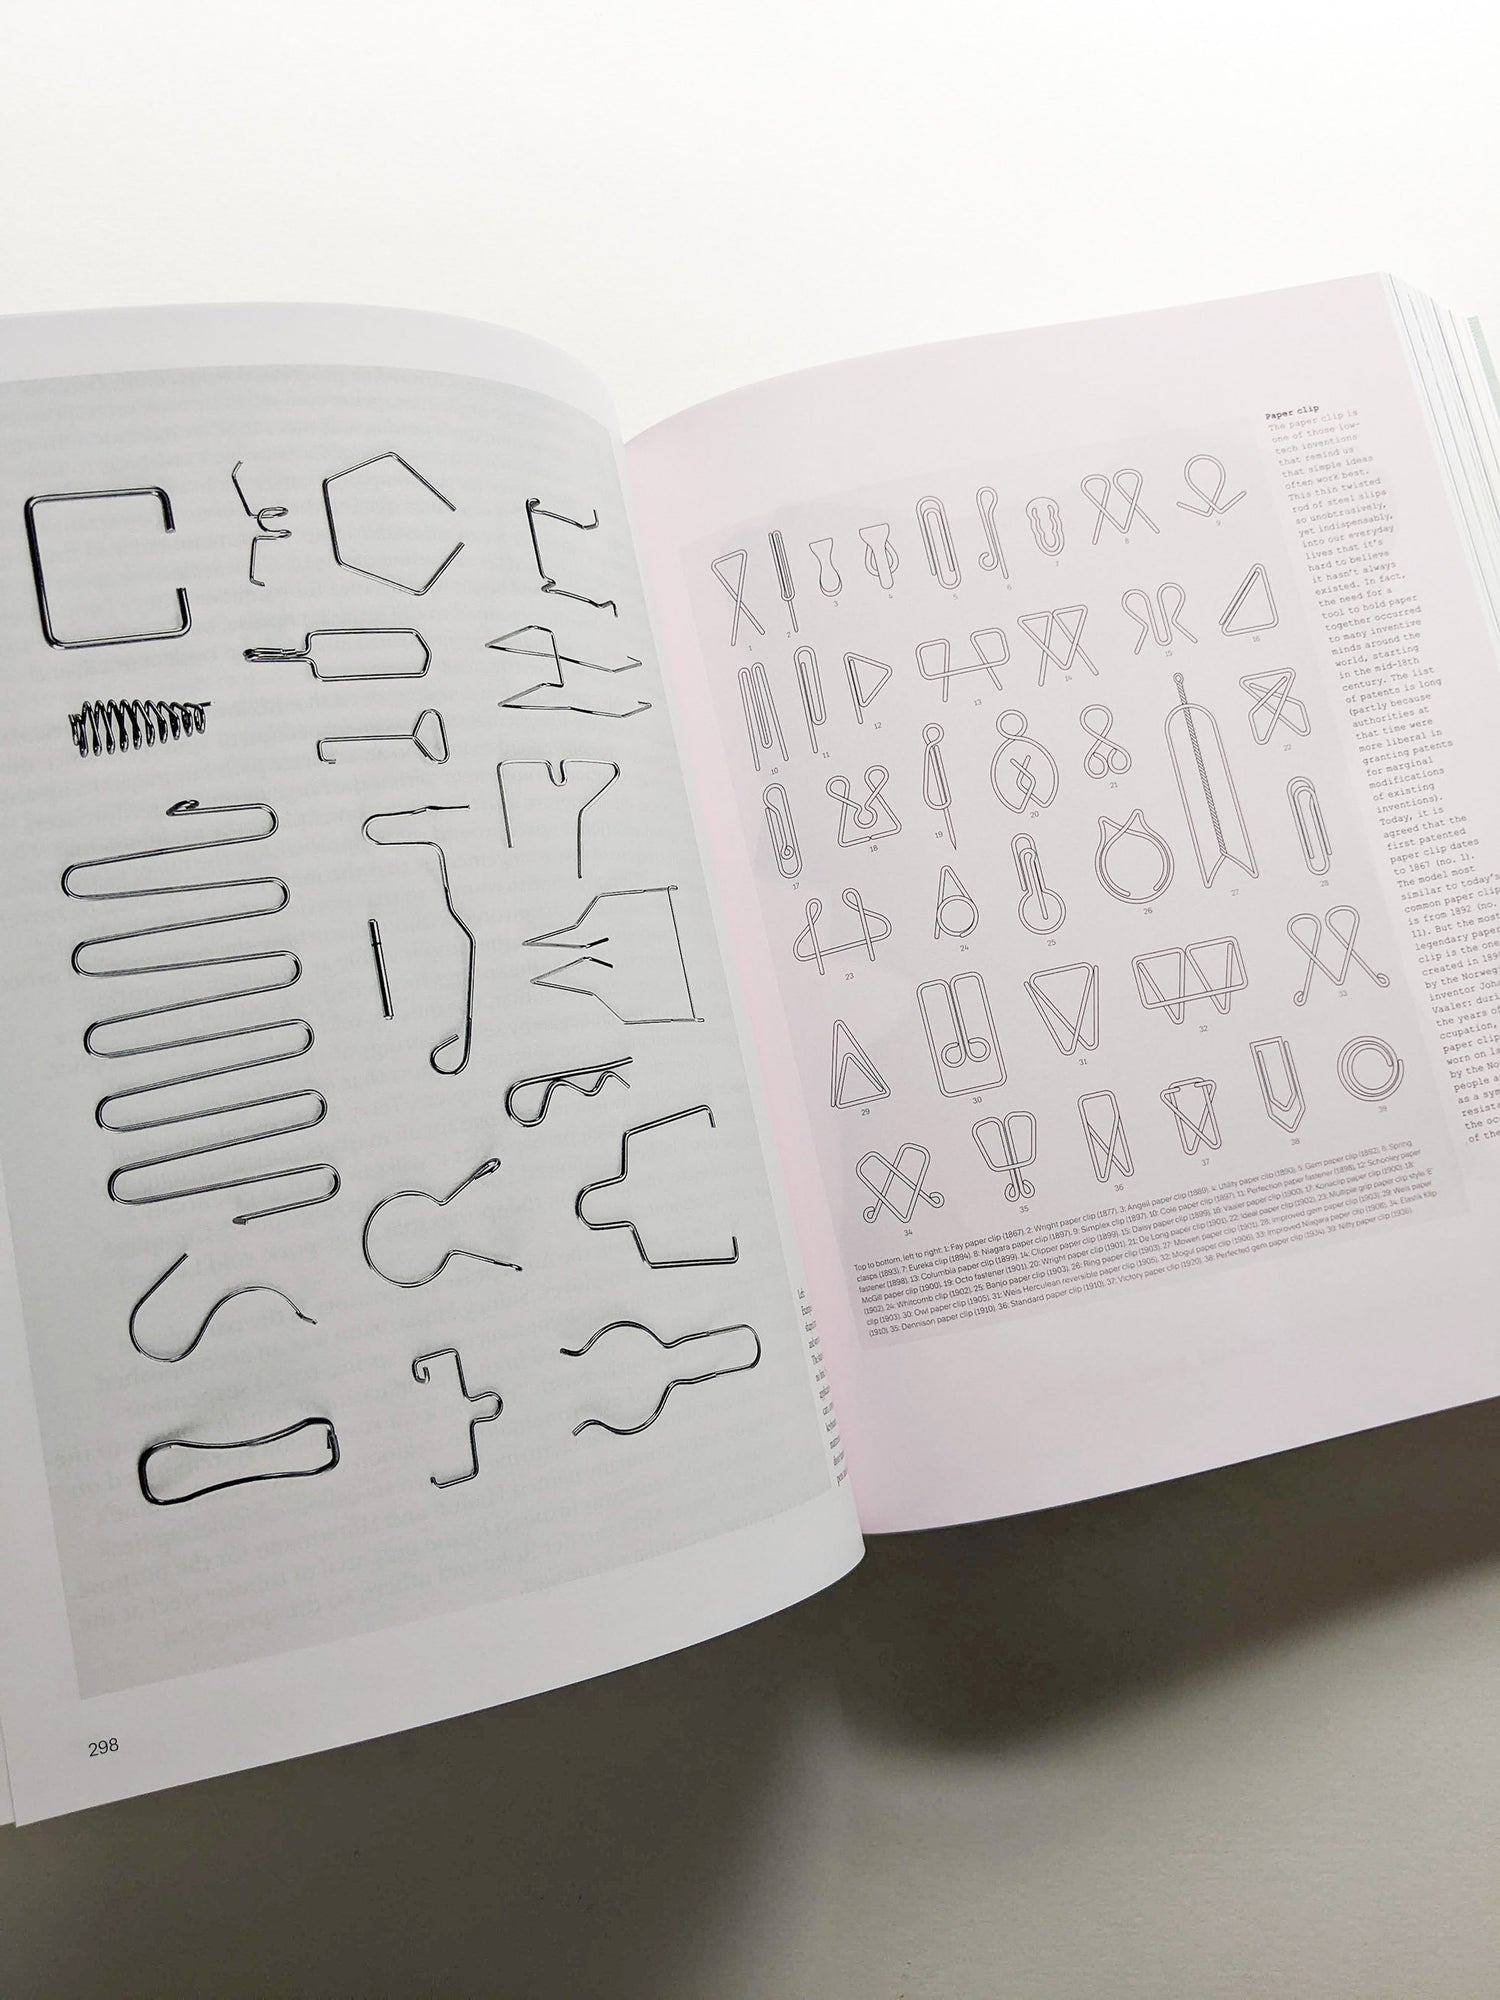 298
Paper clip
The paper clip is
one of those low-
tech inventions
that remind us
that simple ideas
often work best.
This thin twisted
rod of steel slips
so unobtrusively,
yet indispensably,
into our everyday
lives that it's
hard to believe
it hasn't always
existed. In fact,
the need for a
tool to hold paper
together occurred
to many inventive
minds around the
world, starting
in the mid-18th
century. The list
of patents is long
(partly because
authorities at
that time were
more liberal in
granting patents
for marginal
modifications
of existing
inventions).
Today, it is
agreed that the
first patented
paper clip dates
to 1867 (no. 1).
The model most
similar to today's
common paper clip
is from 1892 (no.
11). But the most
legendary paper
clip is the one
created in 189
by the Norweg
inventor Joh
Vaaler: duri
the years of
ccupation,
paper clip
worn on la
by the No
people a
as a sym
resist
the oc
of the
1
2
3
4
5
6
7
8
9
10
11
12
13
14
15
16
17
18
19
20
21
22
23
24
25
26
27
28
29
30
31
32
33
34
35
36
37
38
39
Top to bottom, left to right: 1: Fay paper clip (1867). 2: Wright paper clip (1877). 3: Angell paper clip (1889). 4: Utility paper clip (1890). 5: Gem paper clip (1892). 6: Spring
clasps (1893). 7: Eureka clip (1894). 8: Niagara paper clip (1897). 9: Simplex clip (1897). 10: Cole paper clip (1897). 11: Perfection paper fastener (1898). 12: Schooley paper
fastener (1898). 13: Columbia paper clip (1899). 14: Clipper paper clip (1899). 15: Daisy paper clip (1899). 16: Vaaler paper clip (1900). 17: Konaclip paper clip (1900). 18:
McGill paper clip (1900). 19: Octo fastener (1901). 20: Wright paper clip (1901). 21: De Long paper clip (1901). 22: Ideal paper clip (1902). 23: Multiple grip paper clip style 'E'
(1902). 24: Whitcomb clip (1902). 25: Banjo paper clip (1903). 26: Ring paper clip (1903). 27: Mowen paper clip (1901). 28: Improved gem paper clip (1903). 29: Weis paper
clip (1903). 30: Owl paper clip (1905). 31: Weis Herculean reversible paper clip (1905). 32: Mogul paper clip (1906). 33: Improved Niagara paper clip (1908). 34: Elastik Klip
(1910). 35: Dennison paper clip (1910). 36: Standard paper clip (1910). 37: Victory paper clip (1920). 38: Perfected gem paper clip (1934). 39: Nifty paper clip (1936).